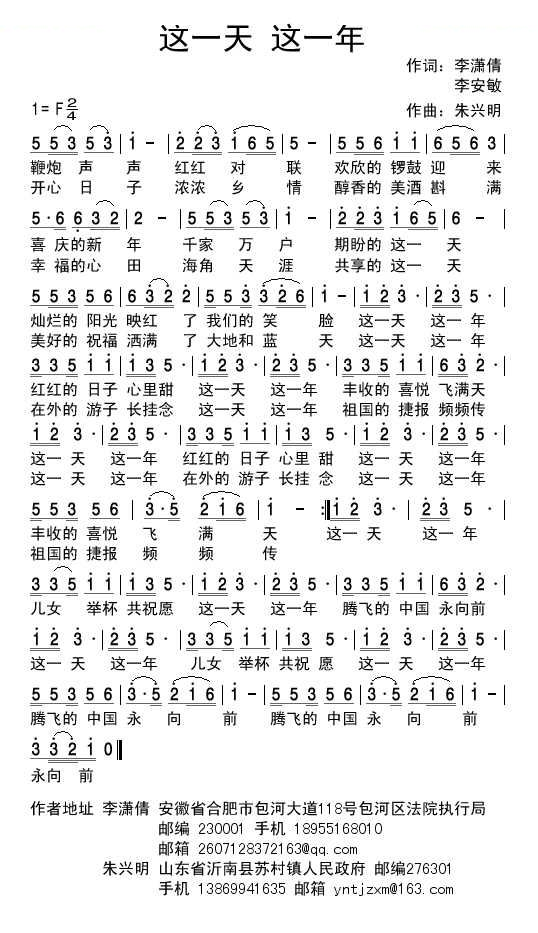 这一天 这一年
作词：李潇倩
李安敏
1=F 2/4
作曲：朱兴明
5 5 3 5 3 | 1 - | 2 2 3 1 6 5 | 5 - | 5 5 6 1 1 | 6 5 6 3 |
鞭炮 声 声 红红 对 联 欢欣的 锣鼓 迎 来
开心 日 子 浓浓 乡 情 醇香的 美酒 斟 满
5 · 6 6 3 2 | 2 - | 5 5 3 5 3 | 1 - | 2 2 3 1 6 5 | 6 - |
喜 庆的新 年 千家 万 户 期盼的 这一 天
幸 福的心 田 海角 天 涯 共享的 这一 天
5 5 3 5 6 | 6 3 2 2 | 5 5 3 5 3 | 3 2 6 | 1 - | 1 2 3 · | 2 3 5 · |
灿烂的 阳光 映红 了 我们的 笑 脸 这一天 这一 年
美好的 祝福 洒满 了 大地和 蓝 天 这一天 这一 年
3 3 5 1 1 | 1 3 5 · | 1 2 3 · | 2 3 5 · | 3 3 5 1 1 | 6 2 3 · |
红红的 日子 心里甜 这一天 这一年 丰收的 喜悦 飞满天
在外的 游子 长挂念 这一天 这一年 祖国的 捷报 频频传
1 2 3 · | 2 3 5 · | 3 3 5 1 1 | 1 3 5 · | 1 2 3 · | 2 3 5 · |
这一 天 这一年 红红的 日子 心里 甜 这一 天 这一年
这一 天 这一年 在外的 游子 长挂 念 这一 天 这一年
5 5 3 5 6 | 3 · 5 2 1 6 | 1 - :‖ 1 2 3 · | 2 3 5 · |
丰收的 喜悦 飞 满 天 这一 天 这一 年
祖国的 捷报 频 频 传
3 3 5 1 1 | 1 3 5 · | 1 2 3 · | 2 3 5 · | 3 3 5 1 1 | 6 2 3 · |
儿女 举杯 共祝愿 这一天 这一年 腾飞的 中国 永向前
1 2 3 · | 2 3 5 · | 3 3 5 1 1 | 1 3 5 · | 1 2 3 · | 2 3 5 · |
这一 天 这一年 儿女 举杯 共祝 愿 这一 天 这一年
5 5 3 5 6 | 3 · 5 2 1 6 | 1 - | 5 5 3 5 6 | 3 · 5 2 1 6 | 1 - |
腾飞的 中国 永 向 前 腾飞的 中国 永 向 前
3 3 2 1 0 ‖
永向 前
作者地址 李潇倩 安徽省合肥市包河大道118号包河区法院执行局
邮编 230001 手机 18955168010
邮箱 2607128372163@qq.com
朱兴明 山东省沂南县苏村镇人民政府 邮编276301
手机 13869941635 邮箱 yntjzxm@163.com